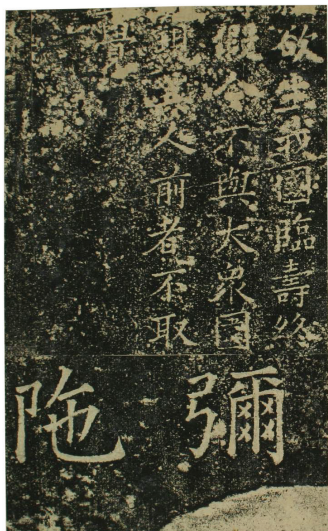 欲生我國臨壽終
假令不與大衆圍
現其人前者不取
覺
彌陀